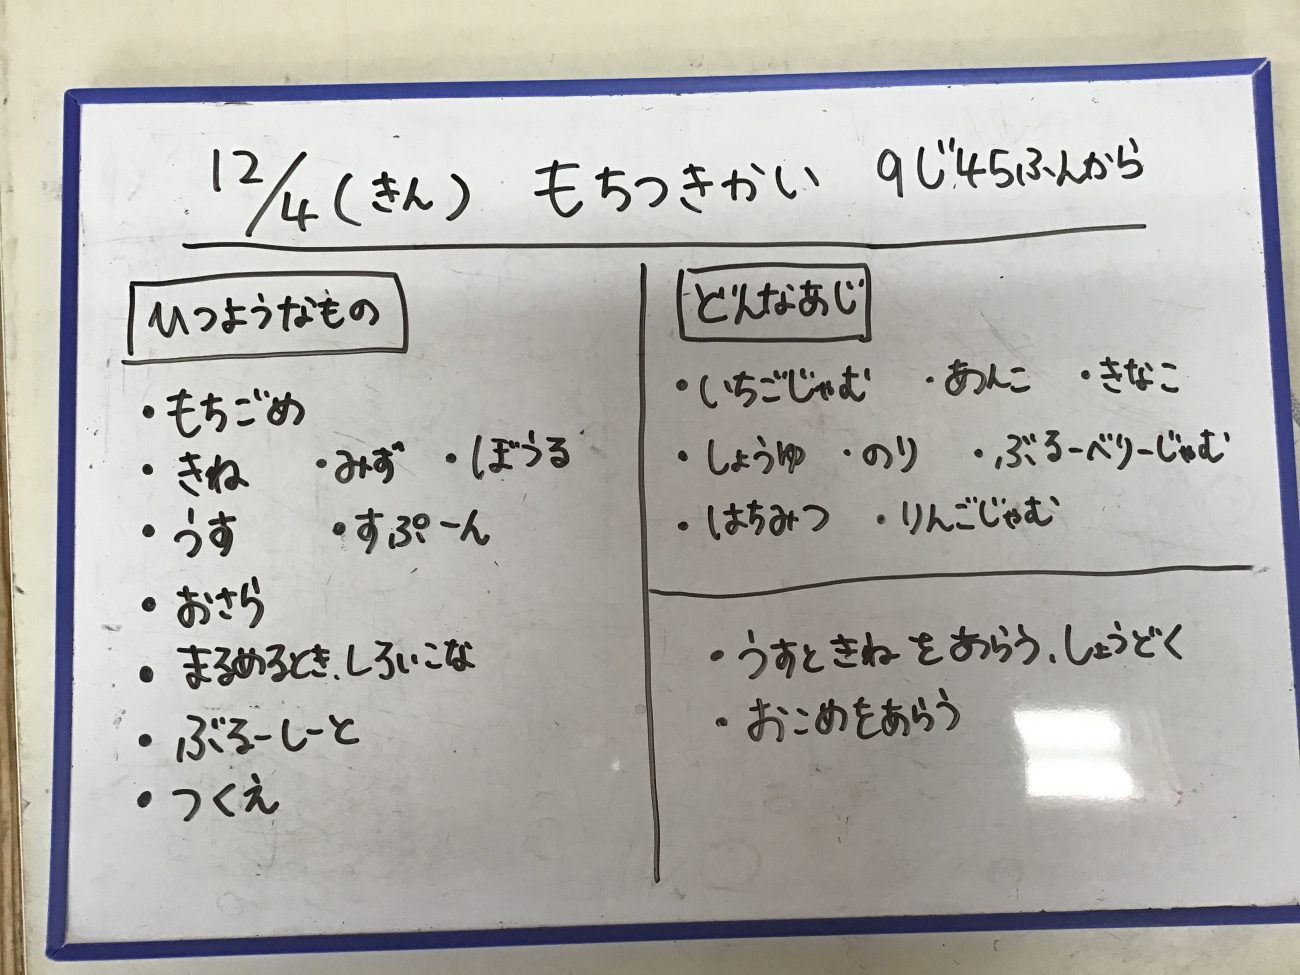 12/4(きん) もちつきかい 9じ45ふんから
ひつようなもの
・もちごめ
・きね ・みず ・ぼうる
・うす ・すぷーん
・おさら
・まるめるとき、しろいこな
・ぶるーしーと
・つくえ
どんなあじ
・いちごじゃむ ・あんこ ・きなこ
・しょうゆ ・のり ・ぶるーべりーじゃむ
・はちみつ ・りんごじゃむ
・うすときねをあらう、しょうどく
・おこめをあらう